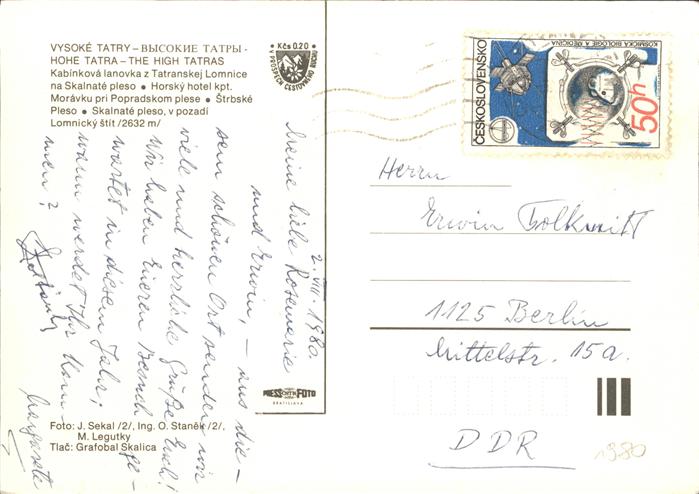 VYSOKÉ TATRY – ВЫСОКИЕ ТАТРЫ -
HOHE TATRA – THE HIGH TATRAS
Kabínková lanovka z Tatranskej Lomnice
na Skalnaté pleso ● Horský hotel kpt.
Morávku pri Popradskom plese ● Štrbské
Pleso ● Skalnaté pleso, v pozadí
Lomnický štít /2632 m/
Kčs 0.20
V PROSPECH CESTOVNÉHO RUCHU
2. VIII. 1980
Meine liebe Rosemarie
und Erwin, – aus die-
sem schönen Ort senden wir
viele und herzliche Grüße Euch!
Wir haben Eueren Besuch ge-
wartet in diesem Jahr,
wann werdet Ihr kom-
men?
Margarete
PRESSFOTO
BRATISLAVA
Foto: J. Sekal /2/, Ing. O. Staněk /2/,
M. Legutky
Tlač: Grafobal Skalica
ČESKOSLOVENSKO
KOZMICKÁ BIOLOGIE A MEDICÍNA
50h
Herrn
Erwin Folkwitt
1125 Berlin
Mittelstr. 15a.
DDR
1980